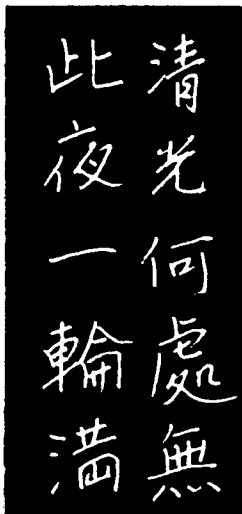 此夜一輪満
清光何處無